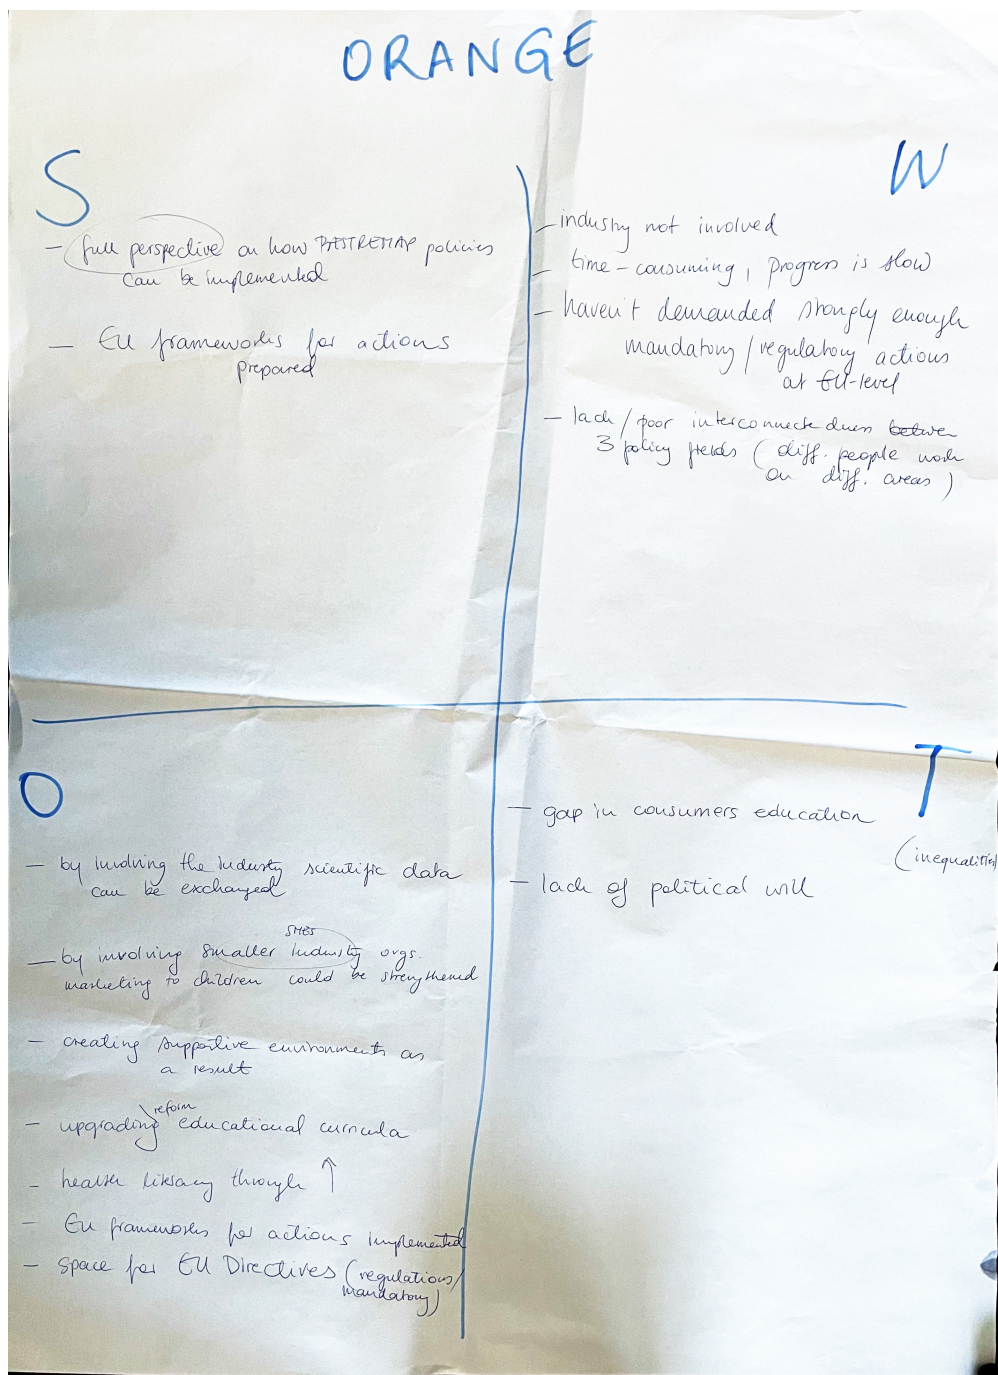 ORANGE
S
- full perspective on how BESTREMAP policies
can be implemented
- EU frameworks for actions
prepared
W
- industry not involved
- time-consuming, progress is slow
- haven't demanded strongly enough
mandatory/regulatory actions
at EU-level
- lack/poor interconnectedness
3 policy fields (diff. people work
on diff. areas)
O
- by involving the industry scientific data
can be exchanged
SMEs
- by involving smaller industry orgs.
marketing to children could be strengthened
- creating supportive environments as
a result
reform
- upgrading educational curricula
- health literacy through ↑
- EU frameworks for actions implemented
- space for EU Directives (regulations/
mandatory)
T
- gap in consumers education
(inequalities)
- lack of political will